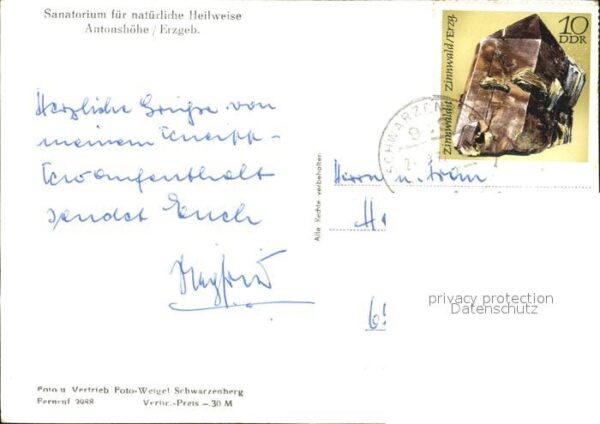 Sanatorium für natürliche Heilweise
Antonshöhe / Erzgeb.
10
DDR
Zinnwaldit Zinnwald/Erzg.
SCHWARZEN
Herzliche Grüße von
meinem Kneipp-
Kuraufenthalt
sendet Euch
Siegfried
Alle Rechte vorbehalten
Herrn u. Frau
H
privacy protection
Datenschutz
Foto u. Vertrieb Foto-Weigel Schwarzenberg
Fernruf 2988 Verbr.-Preis -.30 M